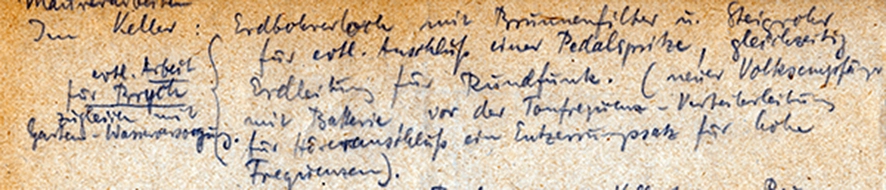 Maurerarbeiten
Im Keller: Erdbohrerloch mit Brunnenfilter u. Steigrohr
für evtl. Anschluß einer Pedalspritze, gleichzeitig
evtl. Arbeit
für
zugleich mit
Garten-Wasserversorgung.
Erdleitung für Rundfunk. (neuer Volksempfänger
mit Batterie vor der Tonfrequenz-Verteilerleitung
für Höreranschluß ein Entzerrungssatz für hohe
Frequenzen).